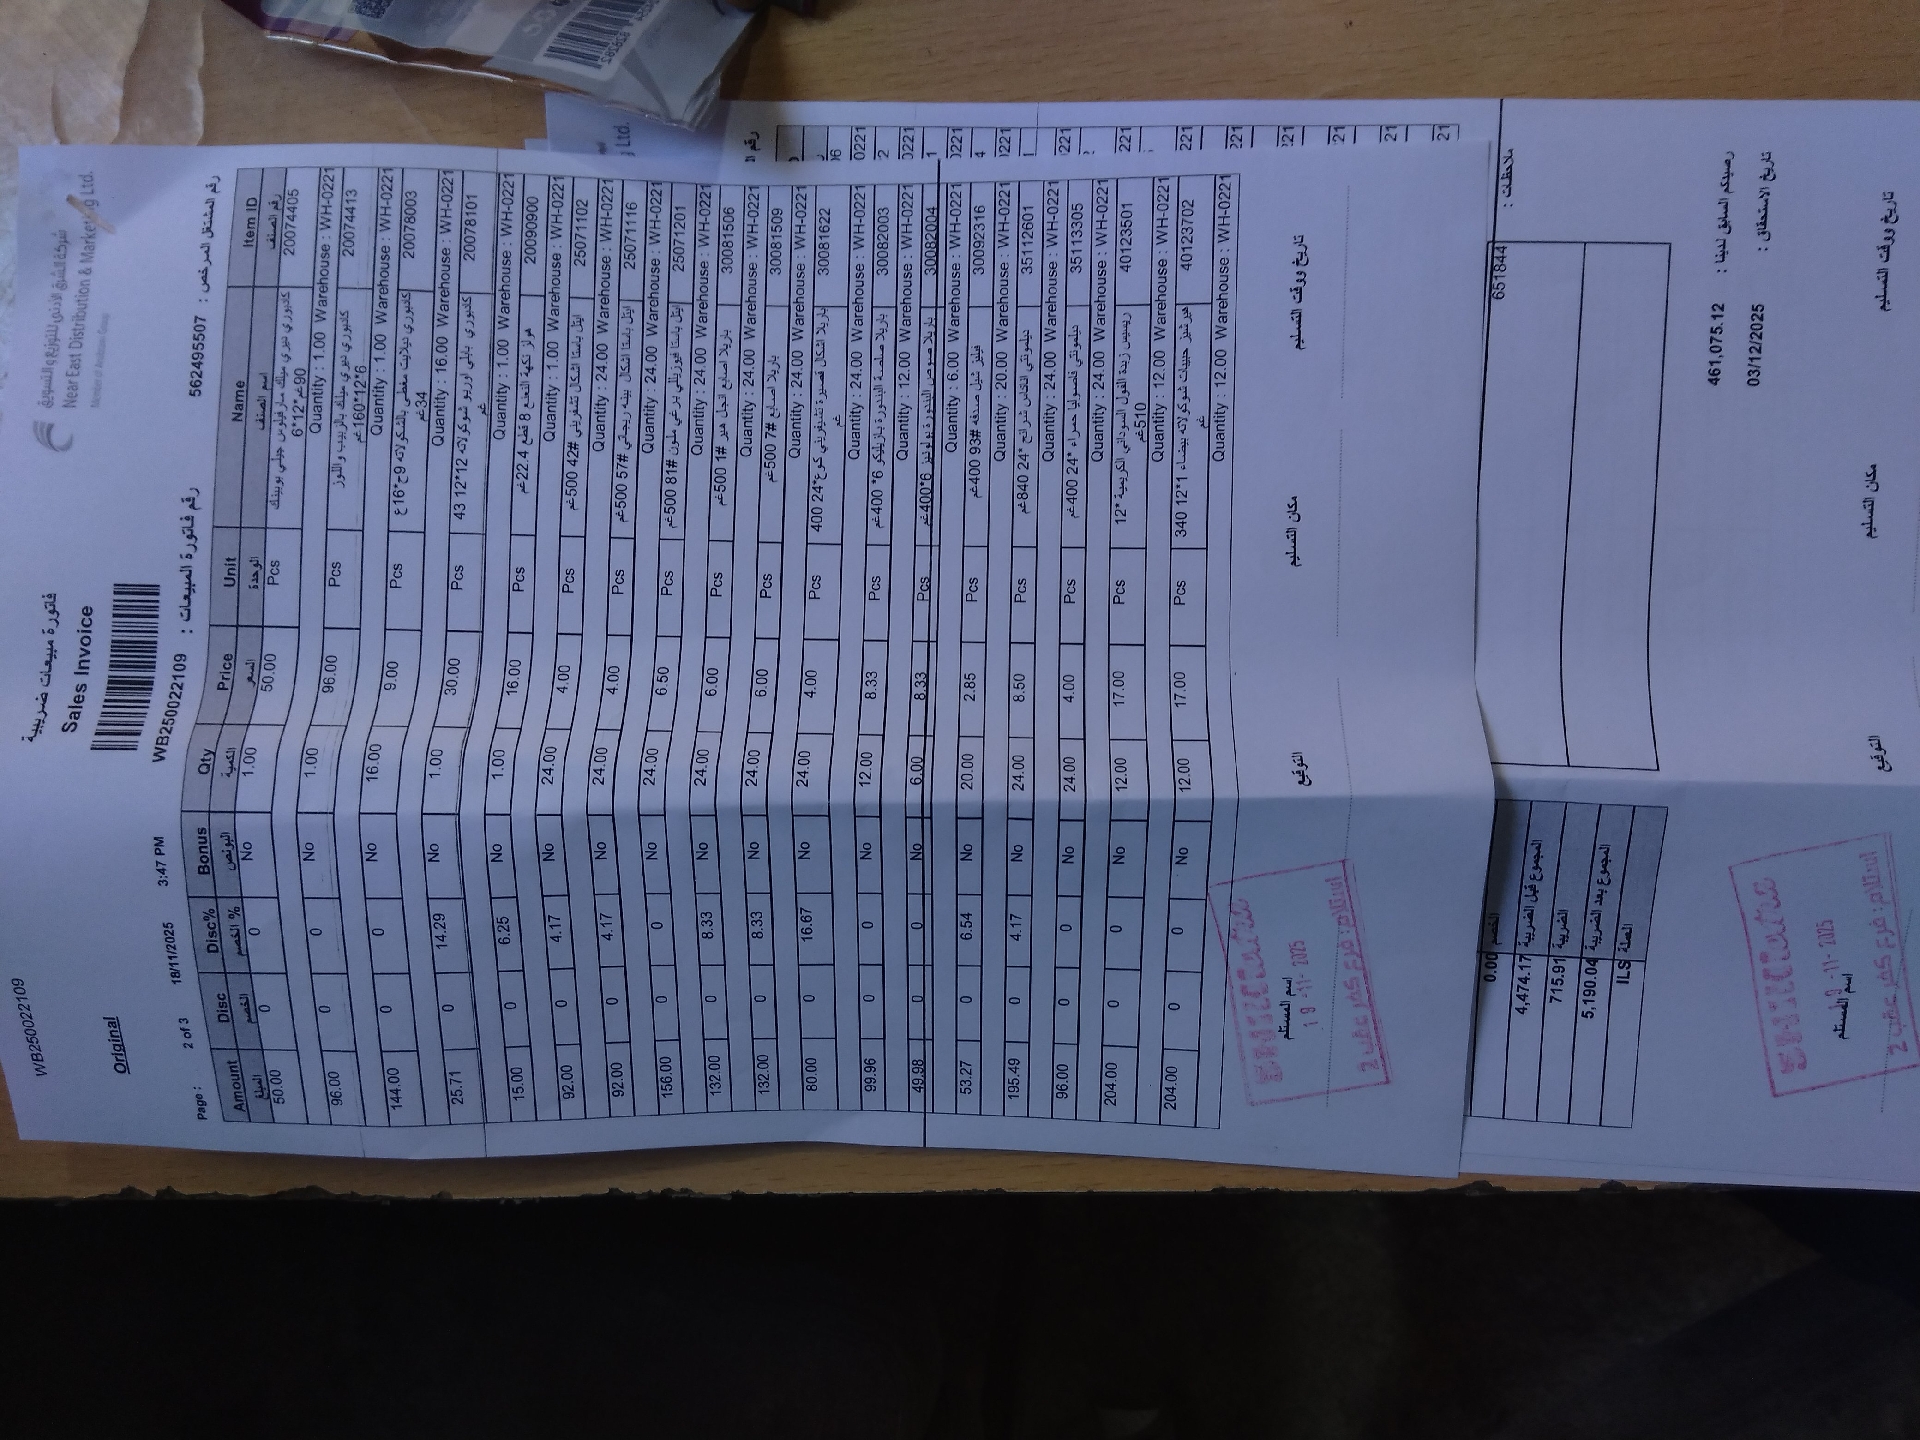 WB250022109
فاتورة مبيعات ضريبية
Sales Invoice
Original
شركة الشرق الأدنى للتوزيع والتسويق
Near East Distribution & Marketing Ltd.
Page : 2 of 3 18/11/2025 3:47 PM WB250022109 : رقم فاتورة المبيعات 562495507 : رقم المشتغل المرخص
Amount Disc Disc% Bonus Qty Price Unit Name Item ID
المبلغ الخصم الخصم % البونص الكمية السعر الوحدة اسم الصنف رقم الصنف
50.00 0 0 No 1.00 50.00 Pcs كادبوري ديري ميلك مارفيلوس جيلي بوبينك 20074405
6*12*90غم
Quantity : 1.00 Warehouse : WH-0221
96.00 0 0 No 1.00 96.00 Pcs كادبوري ديري ميلك بالزبيب واللوز 20074413
6*12*160غم
Quantity : 1.00 Warehouse : WH-0221
144.00 0 0 No 16.00 9.00 Pcs كادبوري ديلايت مغطى بالشكولاته 9ح*16ع 20078003
34غم
Quantity : 16.00 Warehouse : WH-0221
25.71 0 14.29 No 1.00 30.00 Pcs كادبوري بابلي اوريو شوكولاته 12*12 43 20078101
غم
Quantity : 1.00 Warehouse : WH-0221
15.00 0 6.25 No 1.00 16.00 Pcs هولز نكهة النعنع 8 قطع 22.4غم 20090900
Quantity : 1.00 Warehouse : WH-0221
92.00 0 4.17 No 24.00 4.00 Pcs ايتل باستا اشكال تشفريني #42 500غم 25071102
Quantity : 24.00 Warehouse : WH-0221
92.00 0 4.17 No 24.00 4.00 Pcs ايتل باستا اشكال بينه ريجاتي #57 500غم 25071116
Quantity : 24.00 Warehouse : WH-0221
156.00 0 0 No 24.00 6.50 Pcs ايتل باستا فيوزيللي برغي ملون #81 500غم 25071201
Quantity : 24.00 Warehouse : WH-0221
132.00 0 8.33 No 24.00 6.00 Pcs باريلا اصابع انجل هير #1 500غم 30081506
Quantity : 24.00 Warehouse : WH-0221
132.00 0 8.33 No 24.00 6.00 Pcs باريلا اصابع #7 500غم 30081509
Quantity : 24.00 Warehouse : WH-0221
80.00 0 16.67 No 24.00 4.00 Pcs باريلا اشكال قصيرة تشيفريني كوع*24 400 30081622
غم
Quantity : 24.00 Warehouse : WH-0221
99.96 0 0 No 12.00 8.33 Pcs باريلا صلصة البندورة بازيليكو 6* 400غم 30082003
Quantity : 12.00 Warehouse : WH-0221
49.98 0 0 No 6.00 8.33 Pcs باريلا صوص البندورة بولونيز 6*400غم 30082004
Quantity : 6.00 Warehouse : WH-0221
53.27 0 6.54 No 20.00 2.85 Pcs فيليز شيل صدفه #93 400غم 30092316
Quantity : 20.00 Warehouse : WH-0221
195.49 0 4.17 No 24.00 8.50 Pcs ديلمونتي اناناس شرائح *24 840غم 35112601
Quantity : 24.00 Warehouse : WH-0221
96.00 0 0 No 24.00 4.00 Pcs ديلمونتي فاصوليا حمراء *24 400غم 35113305
Quantity : 24.00 Warehouse : WH-0221
204.00 0 0 No 12.00 17.00 Pcs ريسيس زبدة الفول السوداني الكريمية *12 40123501
510غم
Quantity : 12.00 Warehouse : WH-0221
204.00 0 0 No 12.00 17.00 Pcs هيرشيز حبيبات شوكولاته بيضاء 1*12 340 40123702
غم
Quantity : 12.00 Warehouse : WH-0221
اسم المستلم التوقيع مكان التسليم تاريخ ووقت التسليم
19 -11- 2025
استلام: فرع كفر عقب 2
ملاحظات :
651844
0.00 الخصم
4,474.17 المجموع قبل الضريبة
715.91 الضريبة
5,190.04 المجموع بعد الضريبة
ILS العملة
461,075.12 رصيدكم السابق لدينا :
03/12/2025 تاريخ الاستحقاق :
اسم المستلم التوقيع مكان التسليم تاريخ ووقت التسليم
-11- 2025
استلام: فرع كفر عقب 2